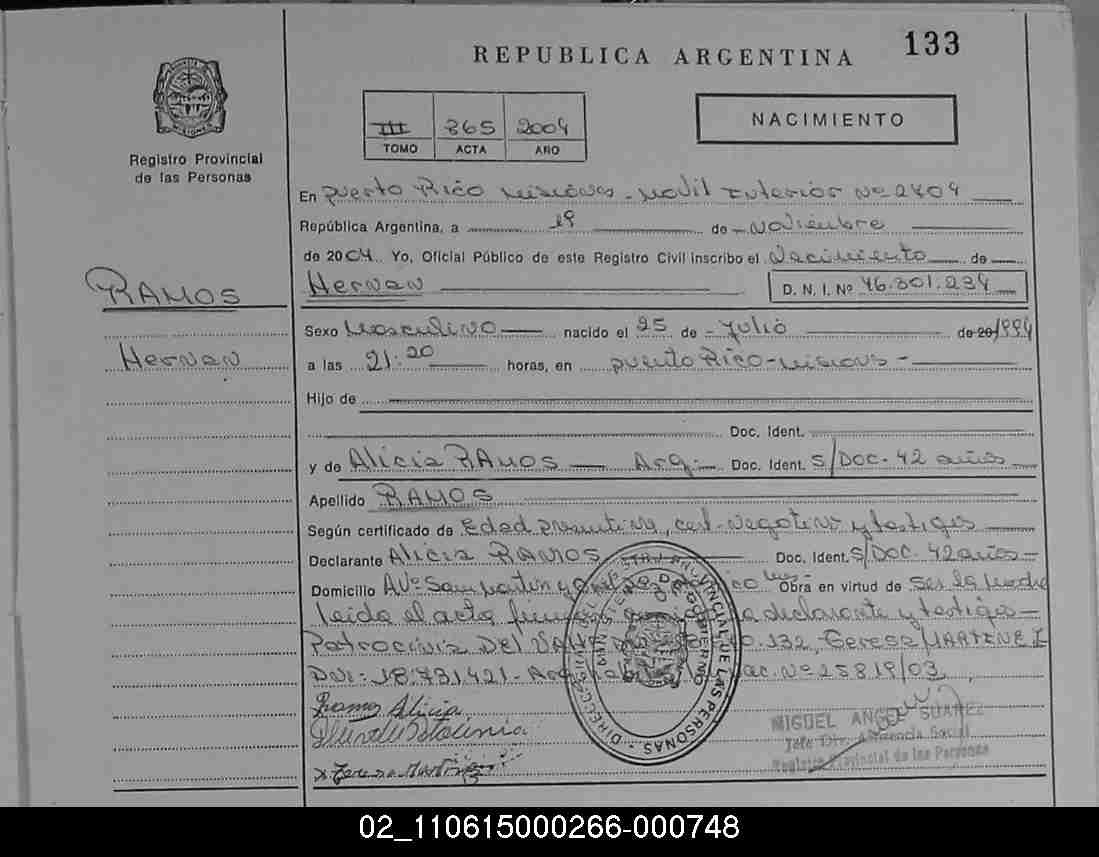 133
REPUBLICA ARGENTINA
MISIONES
Registro Provincial
de las Personas
III 865 2004
TOMO ACTA AÑO
NACIMIENTO
En Puerto Rico Misiones - Movil Interior Nº 2404
República Argentina, a 19 de Noviembre
de 2004 Yo, Oficial Público de este Registro Civil inscribo el Nacimiento de
RAMOS
Hernan
Hernan D. N. I. Nº 46.301.234
Sexo Masculino nacido el 25 de Julio de 20 1994
a las 21:20 horas, en Puerto Rico - Misiones -
Hijo de
Doc. Ident.
y de Alicia RAMOS Arg. Doc. Ident. S/Doc. 42 años
Apellido RAMOS
Según certificado de Edad presuntiva, cert. negativo y testigos
Declarante Alicia RAMOS Doc. Ident. S/Doc. 42 años
Domicilio Avº San Martin y Obra en virtud de Ser la madre
leida el acta declarante y testigos
Patrocinia DEL 132, Teresa MARTINEZ
DNI: 18.731.421 - Nº 25819/03
Ramos Alicia
Teresa Martinez
DIRECCION PROVINCIAL DE LAS PERSONAS
GOBIERNO
MIGUEL ANGEL SUAREZ
Jefe Div. Asistencia Social
Registro Provincial de las Personas
02_110615000266-000748